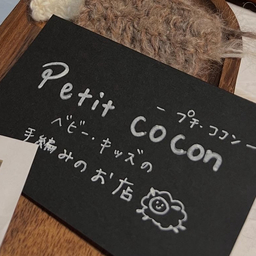 Petit cocon
ー プチ・ココン ー
ベビー・キッズの
手編みのお店